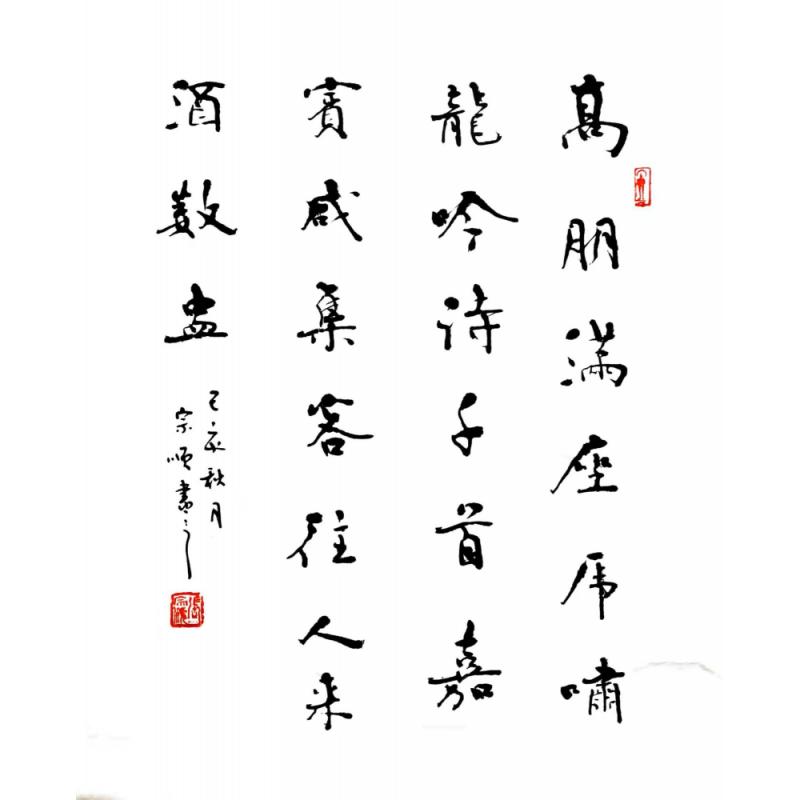 高朋满座虎啸
龍吟诗千首嘉
賓咸集客往人来
酒数盅
己亥秋月
宗顺書之